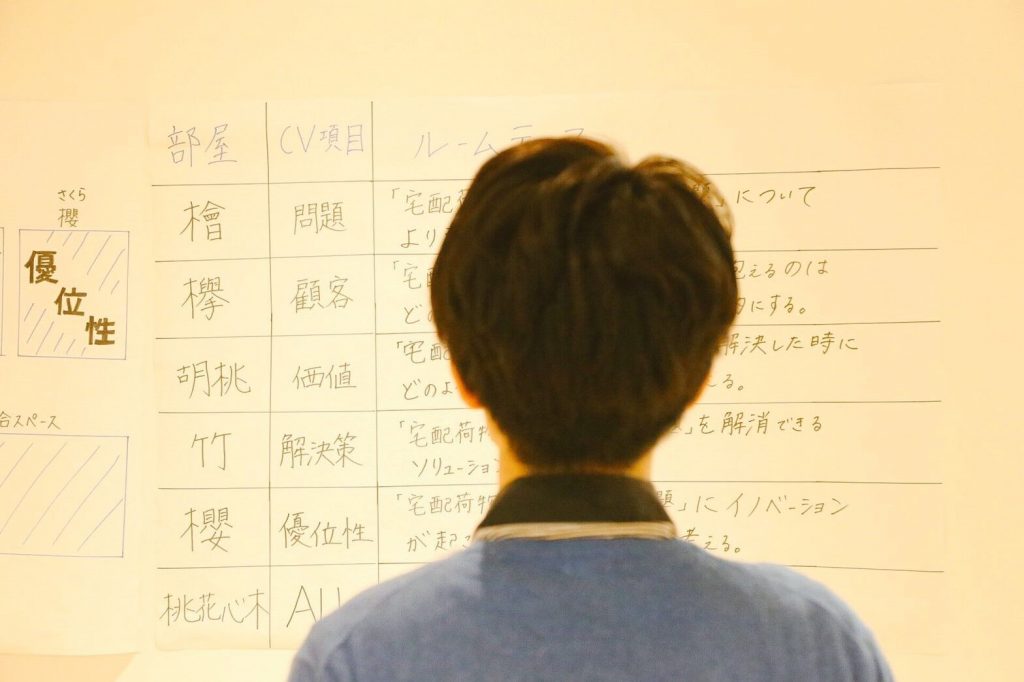 部屋 CV項目 ルームテーマ
檜 問題 「宅配荷 」について
より
欅 顧客 「宅 抱えるのは
ど にする。
胡桃 価値 「宅配 解決した時に
どのよ える。
竹 解決策 「宅配荷物 」を解消できる
ソリューション
櫻 優位性 「宅配荷物 題」にイノベーション
が起こ 考える。
桃花心木 ALL
さくら
櫻
優位性
合スペース